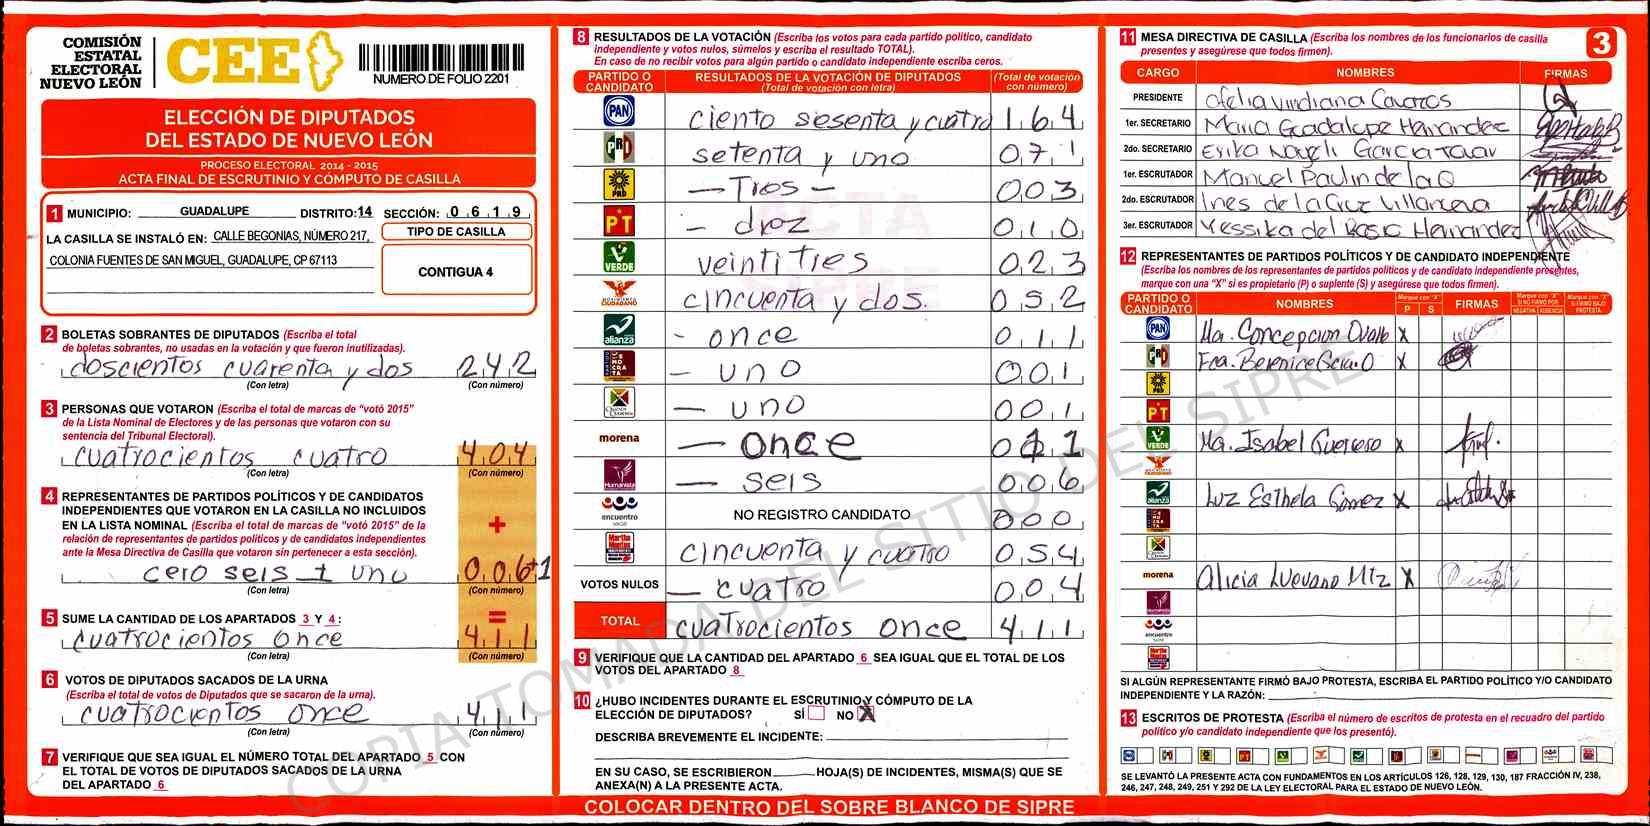 COMISIÓN
ESTATAL
ELECTORAL
NUEVO LEÓN
CEE
NUMERO DE FOLIO 2201
ELECCIÓN DE DIPUTADOS
DEL ESTADO DE NUEVO LEÓN
PROCESO ELECTORAL 2014 - 2015
ACTA FINAL DE ESCRUTINIO Y CÓMPUTO DE CASILLA
1 MUNICIPIO: GUADALUPE DISTRITO:14 SECCIÓN: 0619
LA CASILLA SE INSTALÓ EN: CALLE BEGONIAS, NÚMERO 217,
COLONIA FUENTES DE SAN MIGUEL, GUADALUPE, CP 67113
TIPO DE CASILLA
CONTIGUA 4
2 BOLETAS SOBRANTES DE DIPUTADOS (Escriba el total
de boletas sobrantes, no usadas en la votación y que fueron inutilizadas).
doscientos cuarenta y dos 242
(Con letra) (Con número)
3 PERSONAS QUE VOTARON (Escriba el total de marcas de "votó 2015"
de la Lista Nominal de Electores y de las personas que votaron con su
sentencia del Tribunal Electoral).
cuatrocientos cuatro 404
(Con letra) (Con número)
4 REPRESENTANTES DE PARTIDOS POLÍTICOS Y DE CANDIDATOS
INDEPENDIENTES QUE VOTARON EN LA CASILLA NO INCLUIDOS
EN LA LISTA NOMINAL (Escriba el total de marcas de "votó 2015" de la
relación de representantes de partidos políticos y de candidatos independientes
ante la Mesa Directiva de Casilla que votaron sin pertenecer a esta sección).
+
cero seis + uno 006+1
(Con letra) (Con número)
=
5 SUME LA CANTIDAD DE LOS APARTADOS 3 Y 4:
cuatrocientos once 411
(Con letra) (Con número)
6 VOTOS DE DIPUTADOS SACADOS DE LA URNA
(Escriba el total de votos de Diputados que se sacaron de la urna).
cuatrocientos once 411
(Con letra) (Con número)
7 VERIFIQUE QUE SEA IGUAL EL NÚMERO TOTAL DEL APARTADO 5 CON
EL TOTAL DE VOTOS DE DIPUTADOS SACADOS DE LA URNA
DEL APARTADO 6
8 RESULTADOS DE LA VOTACIÓN (Escriba los votos para cada partido político, candidato
independiente y votos nulos, súmelos y escriba el resultado TOTAL).
En caso de no recibir votos para algún partido o candidato independiente escriba ceros.
PARTIDO O CANDIDATO RESULTADOS DE LA VOTACIÓN DE DIPUTADOS (Total de votación con letra) (Total de votación con número)
PAN ciento sesenta y cuatro 164
PRD setenta y uno 071
PRD — Tres — 003
PT - diez 010
VERDE veintitres 023
MOVIMIENTO CIUDADANO cincuenta y dos. 052
alianza - once 011
- uno 001
— uno 001
morena — once 011
Humanista — seis 006
encuentro NO REGISTRO CANDIDATO 000
Martha cincuenta y cuatro 054
VOTOS NULOS — cuatro 004
TOTAL cuatrocientos once 411
9 VERIFIQUE QUE LA CANTIDAD DEL APARTADO 6 SEA IGUAL QUE EL TOTAL DE LOS
VOTOS DEL APARTADO 8
10 ¿HUBO INCIDENTES DURANTE EL ESCRUTINIO Y CÓMPUTO DE LA
ELECCIÓN DE DIPUTADOS? SÍ NO X
DESCRIBA BREVEMENTE EL INCIDENTE:
EN SU CASO, SE ESCRIBIERON HOJA(S) DE INCIDENTES, MISMA(S) QUE SE
ANEXA(N) A LA PRESENTE ACTA.
COLOCAR DENTRO DEL SOBRE BLANCO DE SIPRE
11 MESA DIRECTIVA DE CASILLA (Escriba los nombres de los funcionarios de casilla
presentes y asegúrese que todos firmen).
3
CARGO NOMBRES FIRMAS
PRESIDENTE Ofelia Viridiana Cavazos
1er. SECRETARIO Maria Guadalupe Hernandez
2do. SECRETARIO Erika Nayeli Garcia
1er. ESCRUTADOR Manuel Paulin de la O
2do. ESCRUTADOR Ines de la Cruz Villanueva
3er. ESCRUTADOR Yessika del Rosio Hernandez
12 REPRESENTANTES DE PARTIDOS POLÍTICOS Y DE CANDIDATO INDEPENDIENTE
(Escriba los nombres de los representantes de partidos políticos y de candidato independiente presentes,
marque con una "X" si es propietario (P) o suplente (S) y asegúrese que todos firmen).
PARTIDO O CANDIDATO NOMBRES Marque con "X" P S FIRMAS Marque con "X" SI NO FIRMÓ POR: NEGATIVA AUSENCIA Marque con "X" SI FIRMÓ BAJO PROTESTA
PAN Ma. Concepcion Ovalle X
PRD Fca. Berenice Gcia. O X
PRD
PT
VERDE Ma. Isabel Guerrero X
alianza Luz Esthela Gomez X
morena Alicia Luevano Mtz X
encuentro
SI ALGÚN REPRESENTANTE FIRMÓ BAJO PROTESTA, ESCRIBA EL PARTIDO POLÍTICO Y/O CANDIDATO
INDEPENDIENTE Y LA RAZÓN:
13 ESCRITOS DE PROTESTA (Escriba el número de escritos de protesta en el recuadro del partido
político y/o candidato independiente que los presentó).
SE LEVANTÓ LA PRESENTE ACTA CON FUNDAMENTOS EN LOS ARTÍCULOS 126, 128, 129, 130, 187 FRACCIÓN IV, 238,
246, 247, 248, 249, 251 Y 292 DE LA LEY ELECTORAL PARA EL ESTADO DE NUEVO LEÓN.
COPIA TOMADA DEL SITIO DEL SIPRE
ACTA
SIPRE